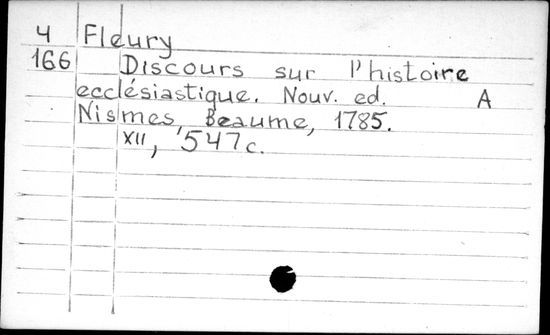 4 Fleury
166 Discours sur l'histoire
ecclésiastique. Nouv. ed. A
Nismes, Beaume, 1785.
XII, 547 c.